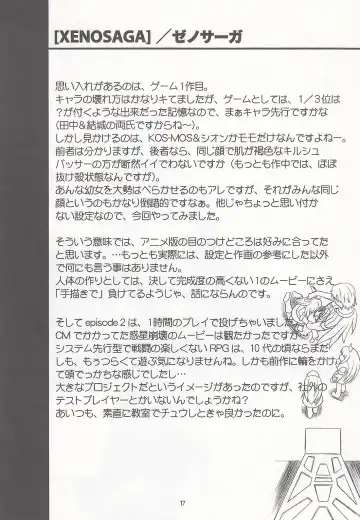 [XENOSAGA]／ゼノサーガ
思い入れがあるのは、ゲーム1作目。
キャラの壊れ方はかなりキてましたが、ゲームとしては、1／3位は
？が付くような出来だった記憶なので、まぁキャラ先行ですかな
（田中＆結城の両氏ですからね～）。
しかし見かけるのは、KOS-MOS＆シオンかモモだけなんですよねー。
前者は分かりますが、後者なら、同じ顔で肌が褐色なキルシュ
バッサーの方が断然イイでわないですか（もっとも作中では、ほぼ
抜け殻状態なんですが）。
あんな幼女を大勢はべらかせるのもアレですが、それがみんな同じ
顔というのもかなり倒錯的ですなぁ。他じゃちょっと思い付か
ない設定なので、今回やってみました。
そういう意味では、アニメ版の目のつけどころは好みに合ってた
と思います。…もっとも実際には、設定と作画の参考にした以外
で何にも言う事はありません。
人体の作りとしては、決して完成度の高くない1のムービーにさえ
「手描きで」負けてるようじゃ、話にならんのです。
そしてepisode2は、1時間のプレイで投げちゃいました
CMでかかってた惑星崩壊のムービーは観たかったですが～
システム先行型で戦闘の楽しくないRPGは、10代の頃ならまだ
しも、もぅつらくて遊ぶ気になりませんね。しかも前作に輪をかけ
て頭でっかちな感じでしたし…
大きなプロジェクトだというイメージがあったのですが、社外の
テストプレイヤーとかいないんでしょうかね？
あいつも、素直に教室でチュウしときゃ良かったのに。
17